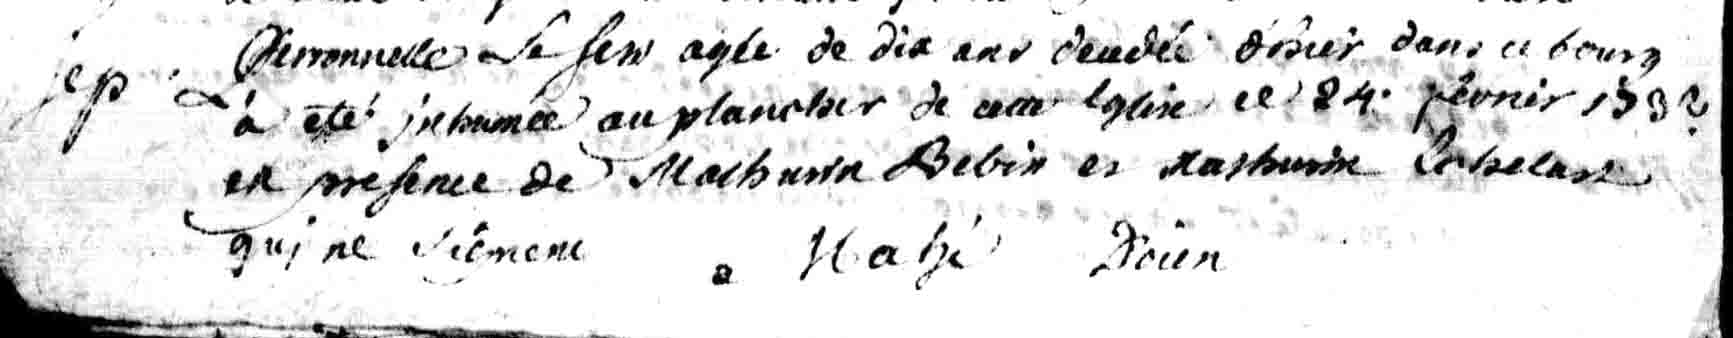 Perronnelle Le Sero agée de dix ans decedée d'hier dans ce bourg
sep. a été inhumée au plancher de cette Eglise le 24. fevrier 1732
en presence de Mathurin Bebin et Mathurin
qui ne signent Mahé Doien